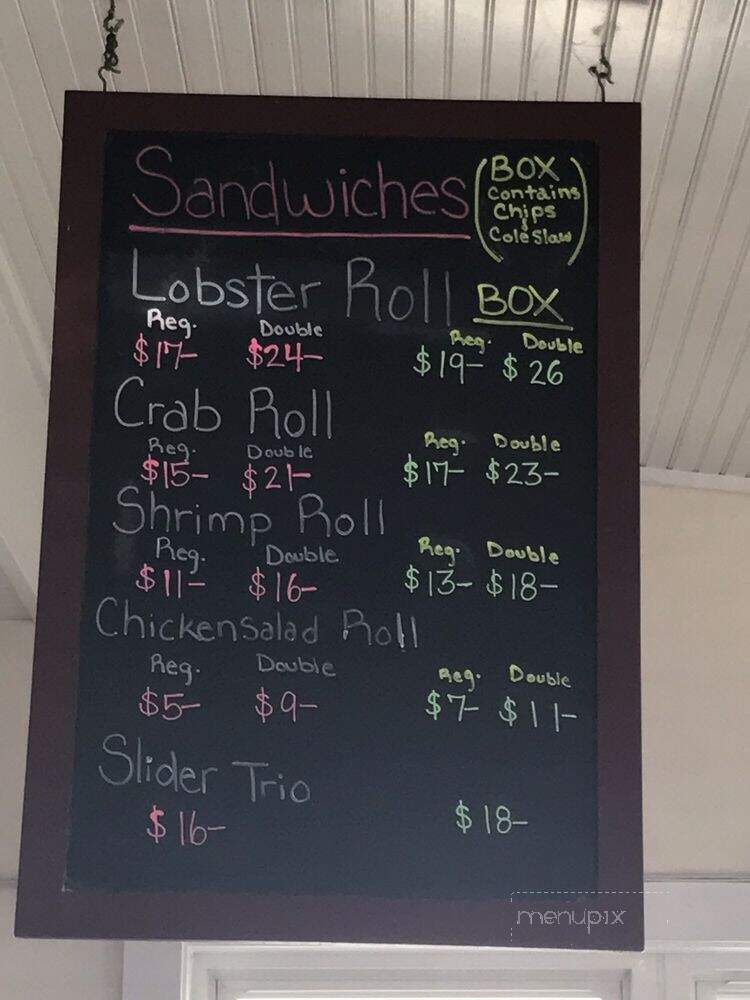 Sandwiches
(BOX
contains
Chips
&
Cole Slaw)
Lobster Roll BOX
Reg. Double Reg. Double
$17- $24- $19- $26
Crab Roll
Reg. Double Reg. Double
$15- $21- $17- $23-
Shrimp Roll
Reg. Double Reg. Double
$11- $16- $13- $18-
Chickensalad Roll
Reg. Double Reg. Double
$5- $9- $7- $11-
Slider Trio
$16- $18-
menupix